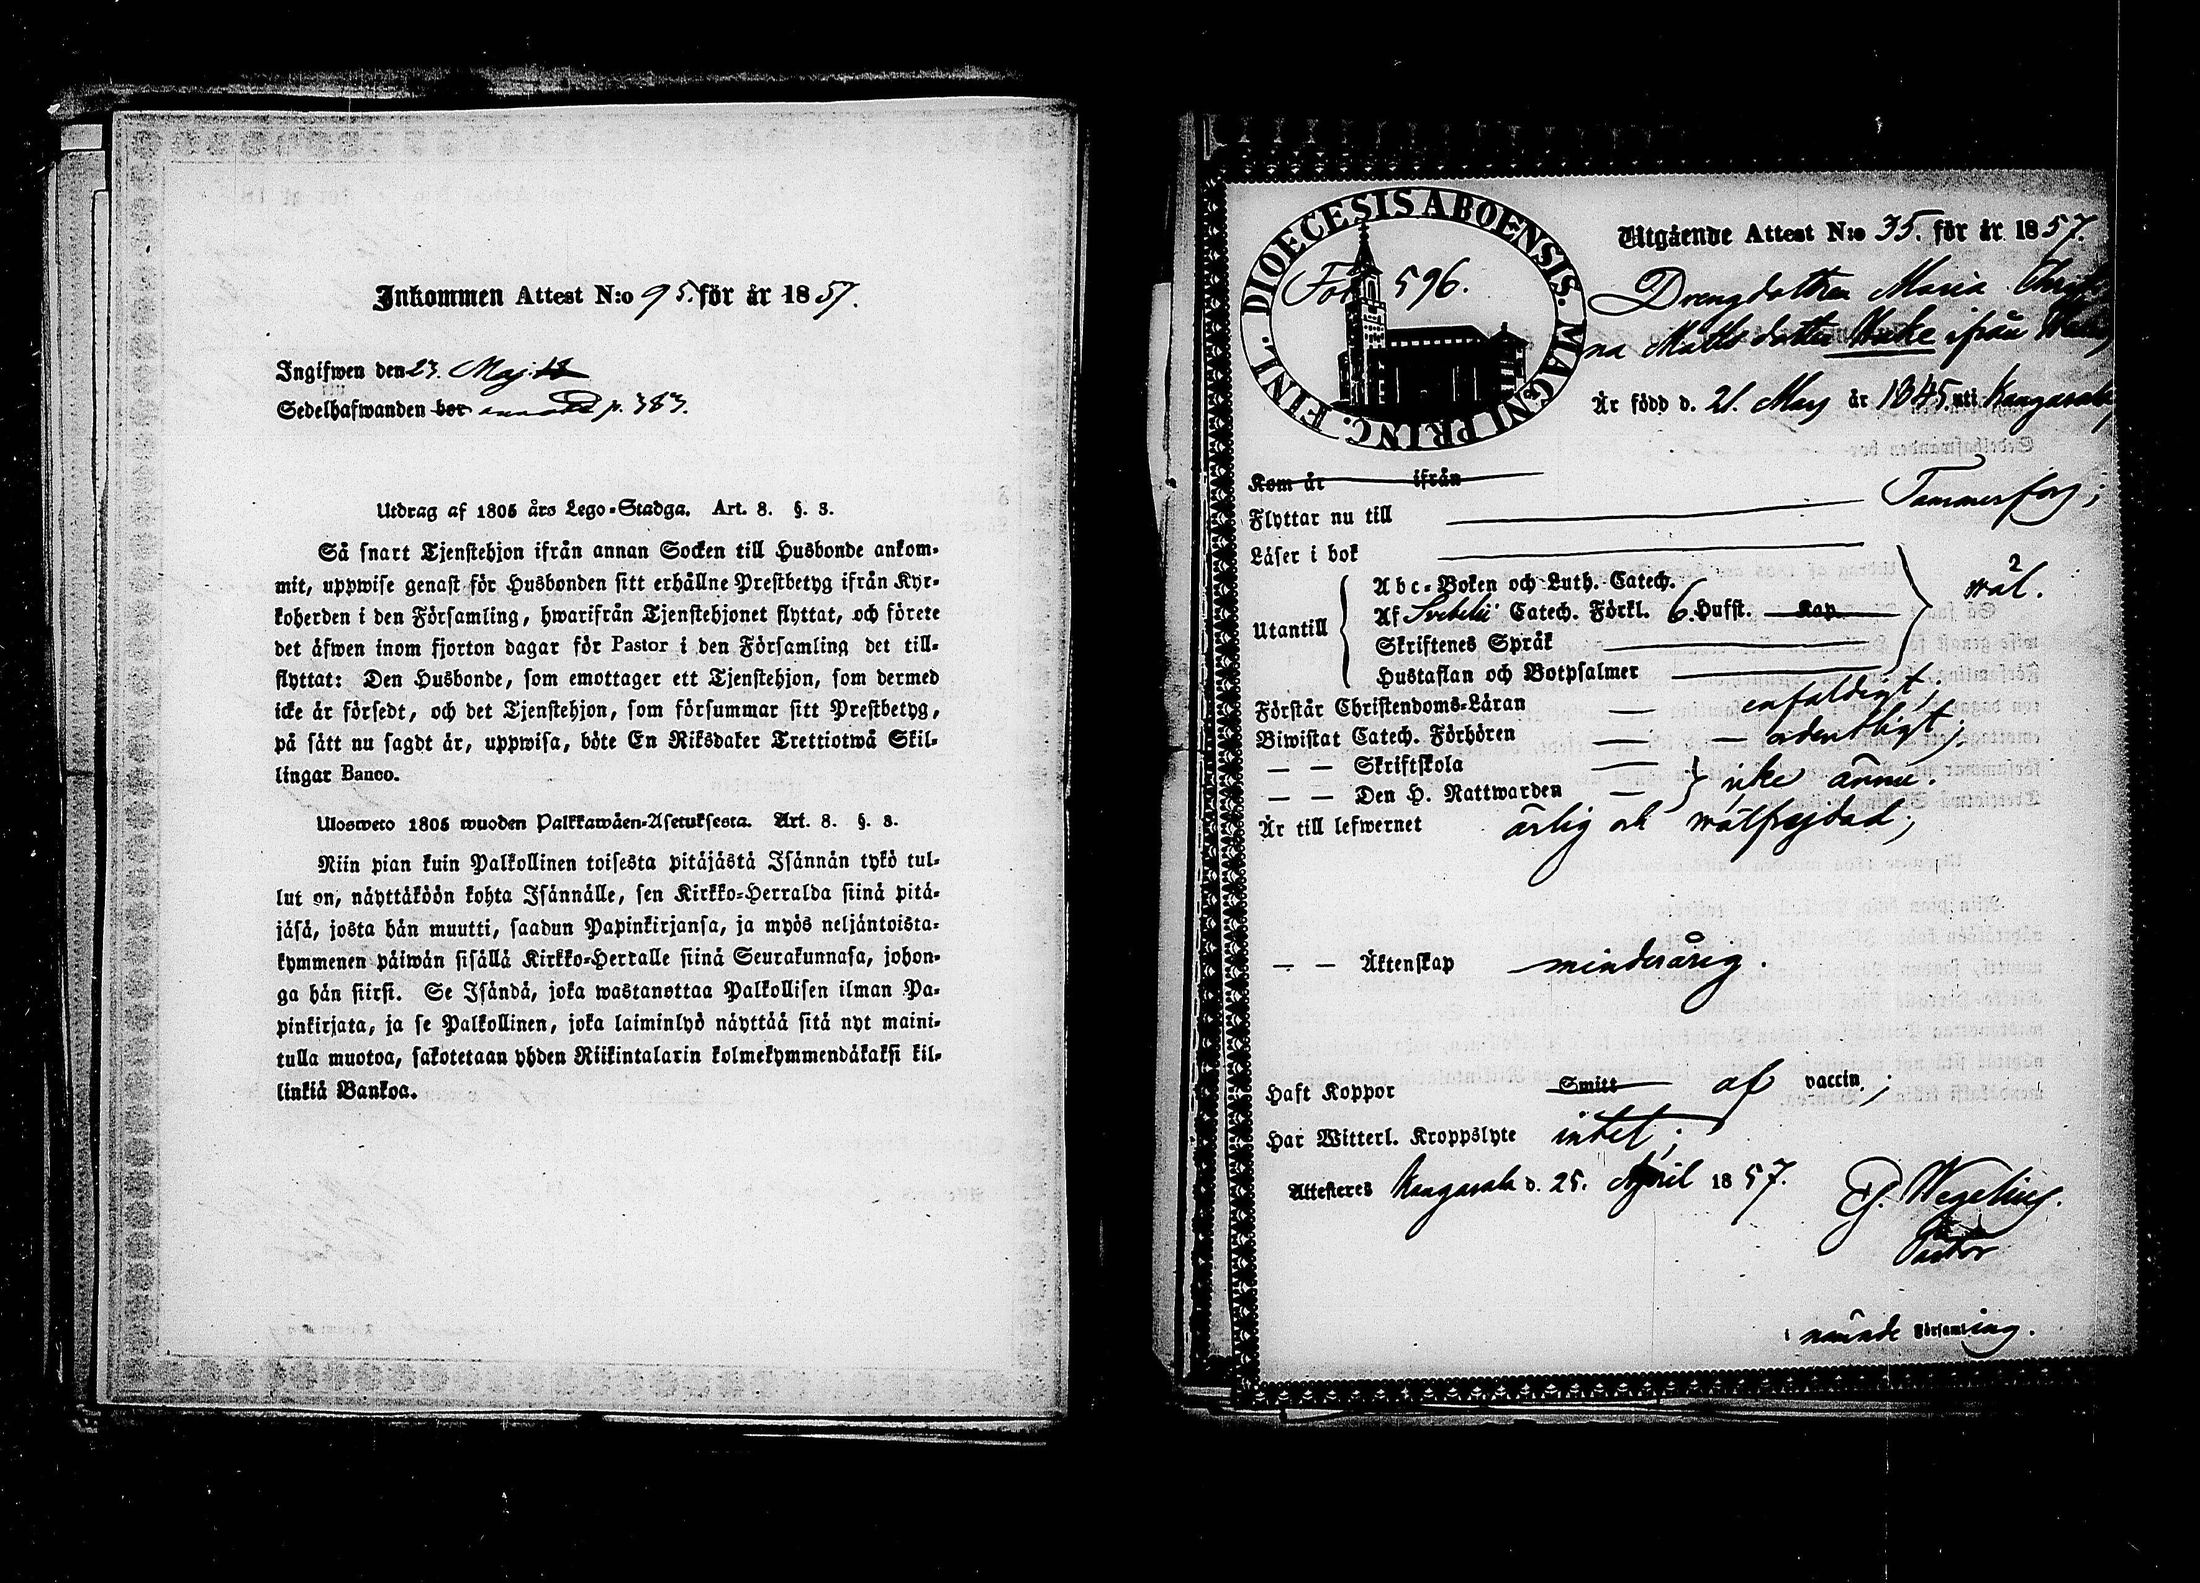 Inkommen Attest N:o 95. för år 1857.
Ingifwen den 23. Maj
Sedelhafwanden bor p. 383.
Utdrag af 1805 års Lego-Stadga. Art. 8. §. 3.
Så snart Tjenstehjon ifrån annan Socken till Husbonde ankom-
mit, uppwise genast för Husbonden sitt erhållne Prestbetyg ifrån Kyr-
koherden i den Församling, hwarifrån Tjenstehjonet flyttat, och förete
det äfwen inom fjorton dagar för Pastor i den Församling det till-
flyttat: Den Husbonde, som emottager ett Tjenstehjon, som dermed
icke är försedt, och det Tjenstehjon, som försummar sitt Prestbetyg,
på sätt nu sagdt är, uppwisa, böte En Riksdaler Trettiotwå Skil-
lingar Banco.
Ulosweto 1805 wuoden Palkkawäen-Asetuksesta. Art. 8. §. 3.
Niin pian kuin Palkollinen toisesta pitäjästä Isännän tykö tul-
lut on, näyttäköön kohta Isännälle, sen Kirkko-Herralda siinä pitä-
jäsä, josta hän muutti, saadun Papinkirjansa, ja myös neljäntoista-
kymmenen päiwän sisällä Kirkko-Herralle siinä Seurakunnasa, johon-
ga hän siirsi. Se Isändä, joka wastanottaa Palkollisen ilman Pa-
pinkirjata, ja se Palkollinen, joka laiminlyö näyttää sitä nyt maini-
tulla muotoa, sakotetaan yhden Riikintalarin kolmekymmendäkaksi kil-
linkiä Bankoa.
DIOECESIS ABOENSIS. MAGNI PRINC. FINL.
Fol 596.
Utgående Attest N:o 35. för år 1857.
Drengdottren Maria
na Matts dotter ifrån
Är född d. 21. May år 1845. uti Kangasala
Kom år ifrån
Flyttar nu till Tammerfors;
Läser i bok
Utantill
Abc-Boken och Luth. Catech.
Af Svebelii Catech. Förkl. 6. Hufst. Kap
Skriftenes Språk
Hustaflan och Botpsalmer
wäl.
Förstår Christendoms-Läran — enfaldigt;
Biwistat Catech. Förhören — — ordentligt;
— — Skriftskola —
— — Den H. Nattwarden — icke ännu.
Är till lefwernet ärlig och wälfrejdad;
— — Äktenskap minderårig.
Haft Koppor Smitt af vaccin;
Har Witterl. Kroppslyte intet;
Attesteres Kangasala d. 25. April 1857.
G. Wegelius.
Pastor
i nämnde Församling.